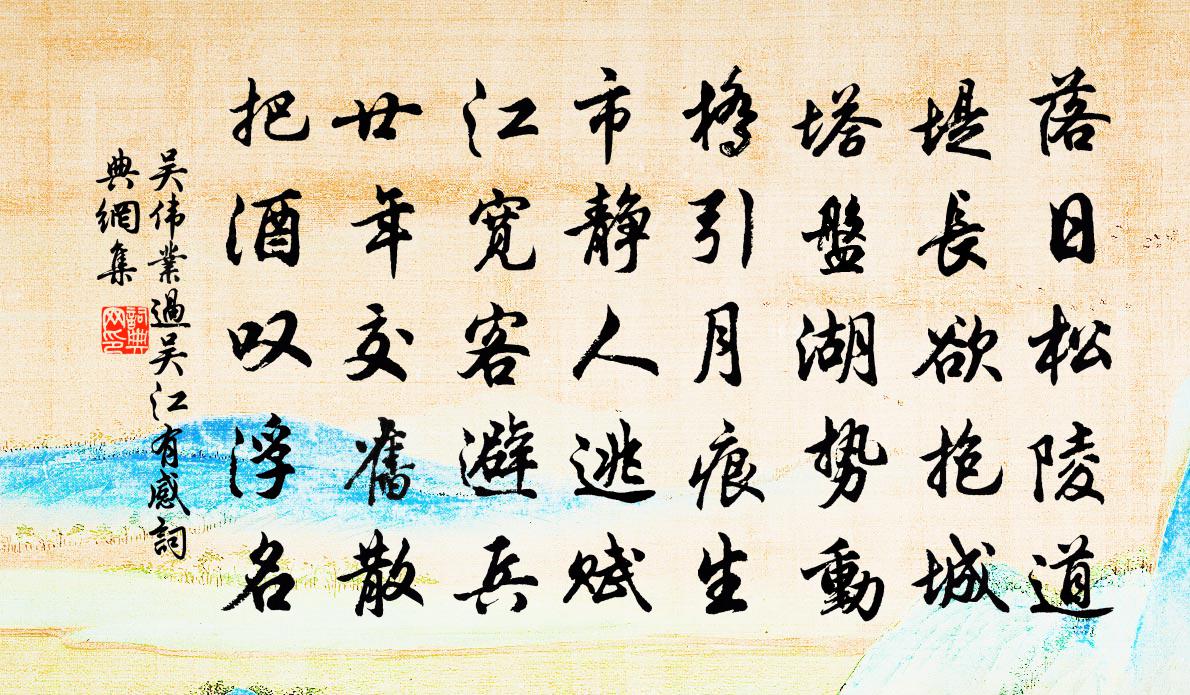 落日松陵道
堤長欲抱城
塔盤湖势動
橋引月痕生
市靜人逃赋
江寛客避兵
廿年交舊散
把酒叹浮名
吴伟業過吴江有感詞
典網集
詞典
网印